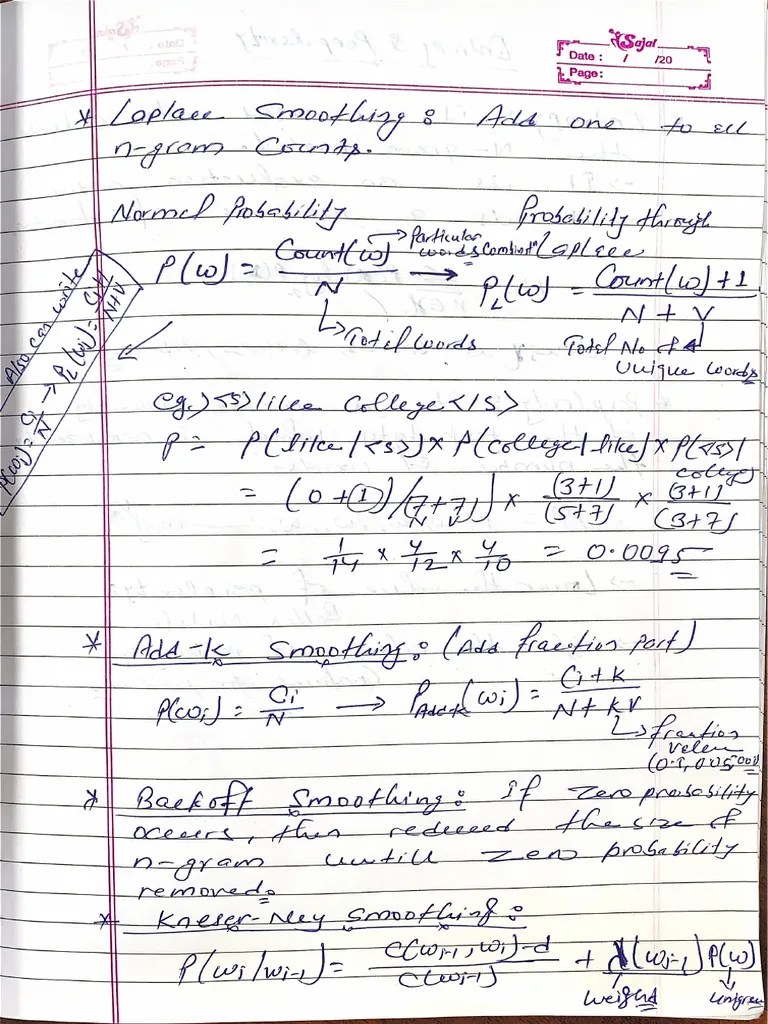 Sajal
Date : / /20
Page:
* Laplace Smoothing : Add one to all
n-gram Counts.
Normal Probability
Probability through
Laplace
P(w) = Count(w) / N → P_L(w) = Count(w) + 1 / N + V
→ Particular words
↳ Total words
Total No of
Unique words
Also can write
P(wi) = Ci / N → P_L(wi) = Ci+1 / N+V
eg.) <s> like College </s>
P = P(like | <s>) x P(college | like) x P(</s> |
college)
= (0 + 1) / (7 + 7) x (3+1) / (5+7) x (3+1) / (3+7)
N V
= 1/14 x 4/12 x 4/10 = 0.0095
* Add-k Smoothing : (Add fraction part)
P(wi) = Ci / N → P_Add-k (wi) = Ci + k / N + kV
↳ fraction
value
(0.1, 0.05,
* Backoff Smoothing : if zero probability
occurs, then reduced the size of
n-gram untill zero probability
removed.
* Kneser-Ney Smoothing :
P(wi/wi-1) = c(wi-1, wi) - d / c(wi-1) + λ(wi-1) P(w)
weight
unigram